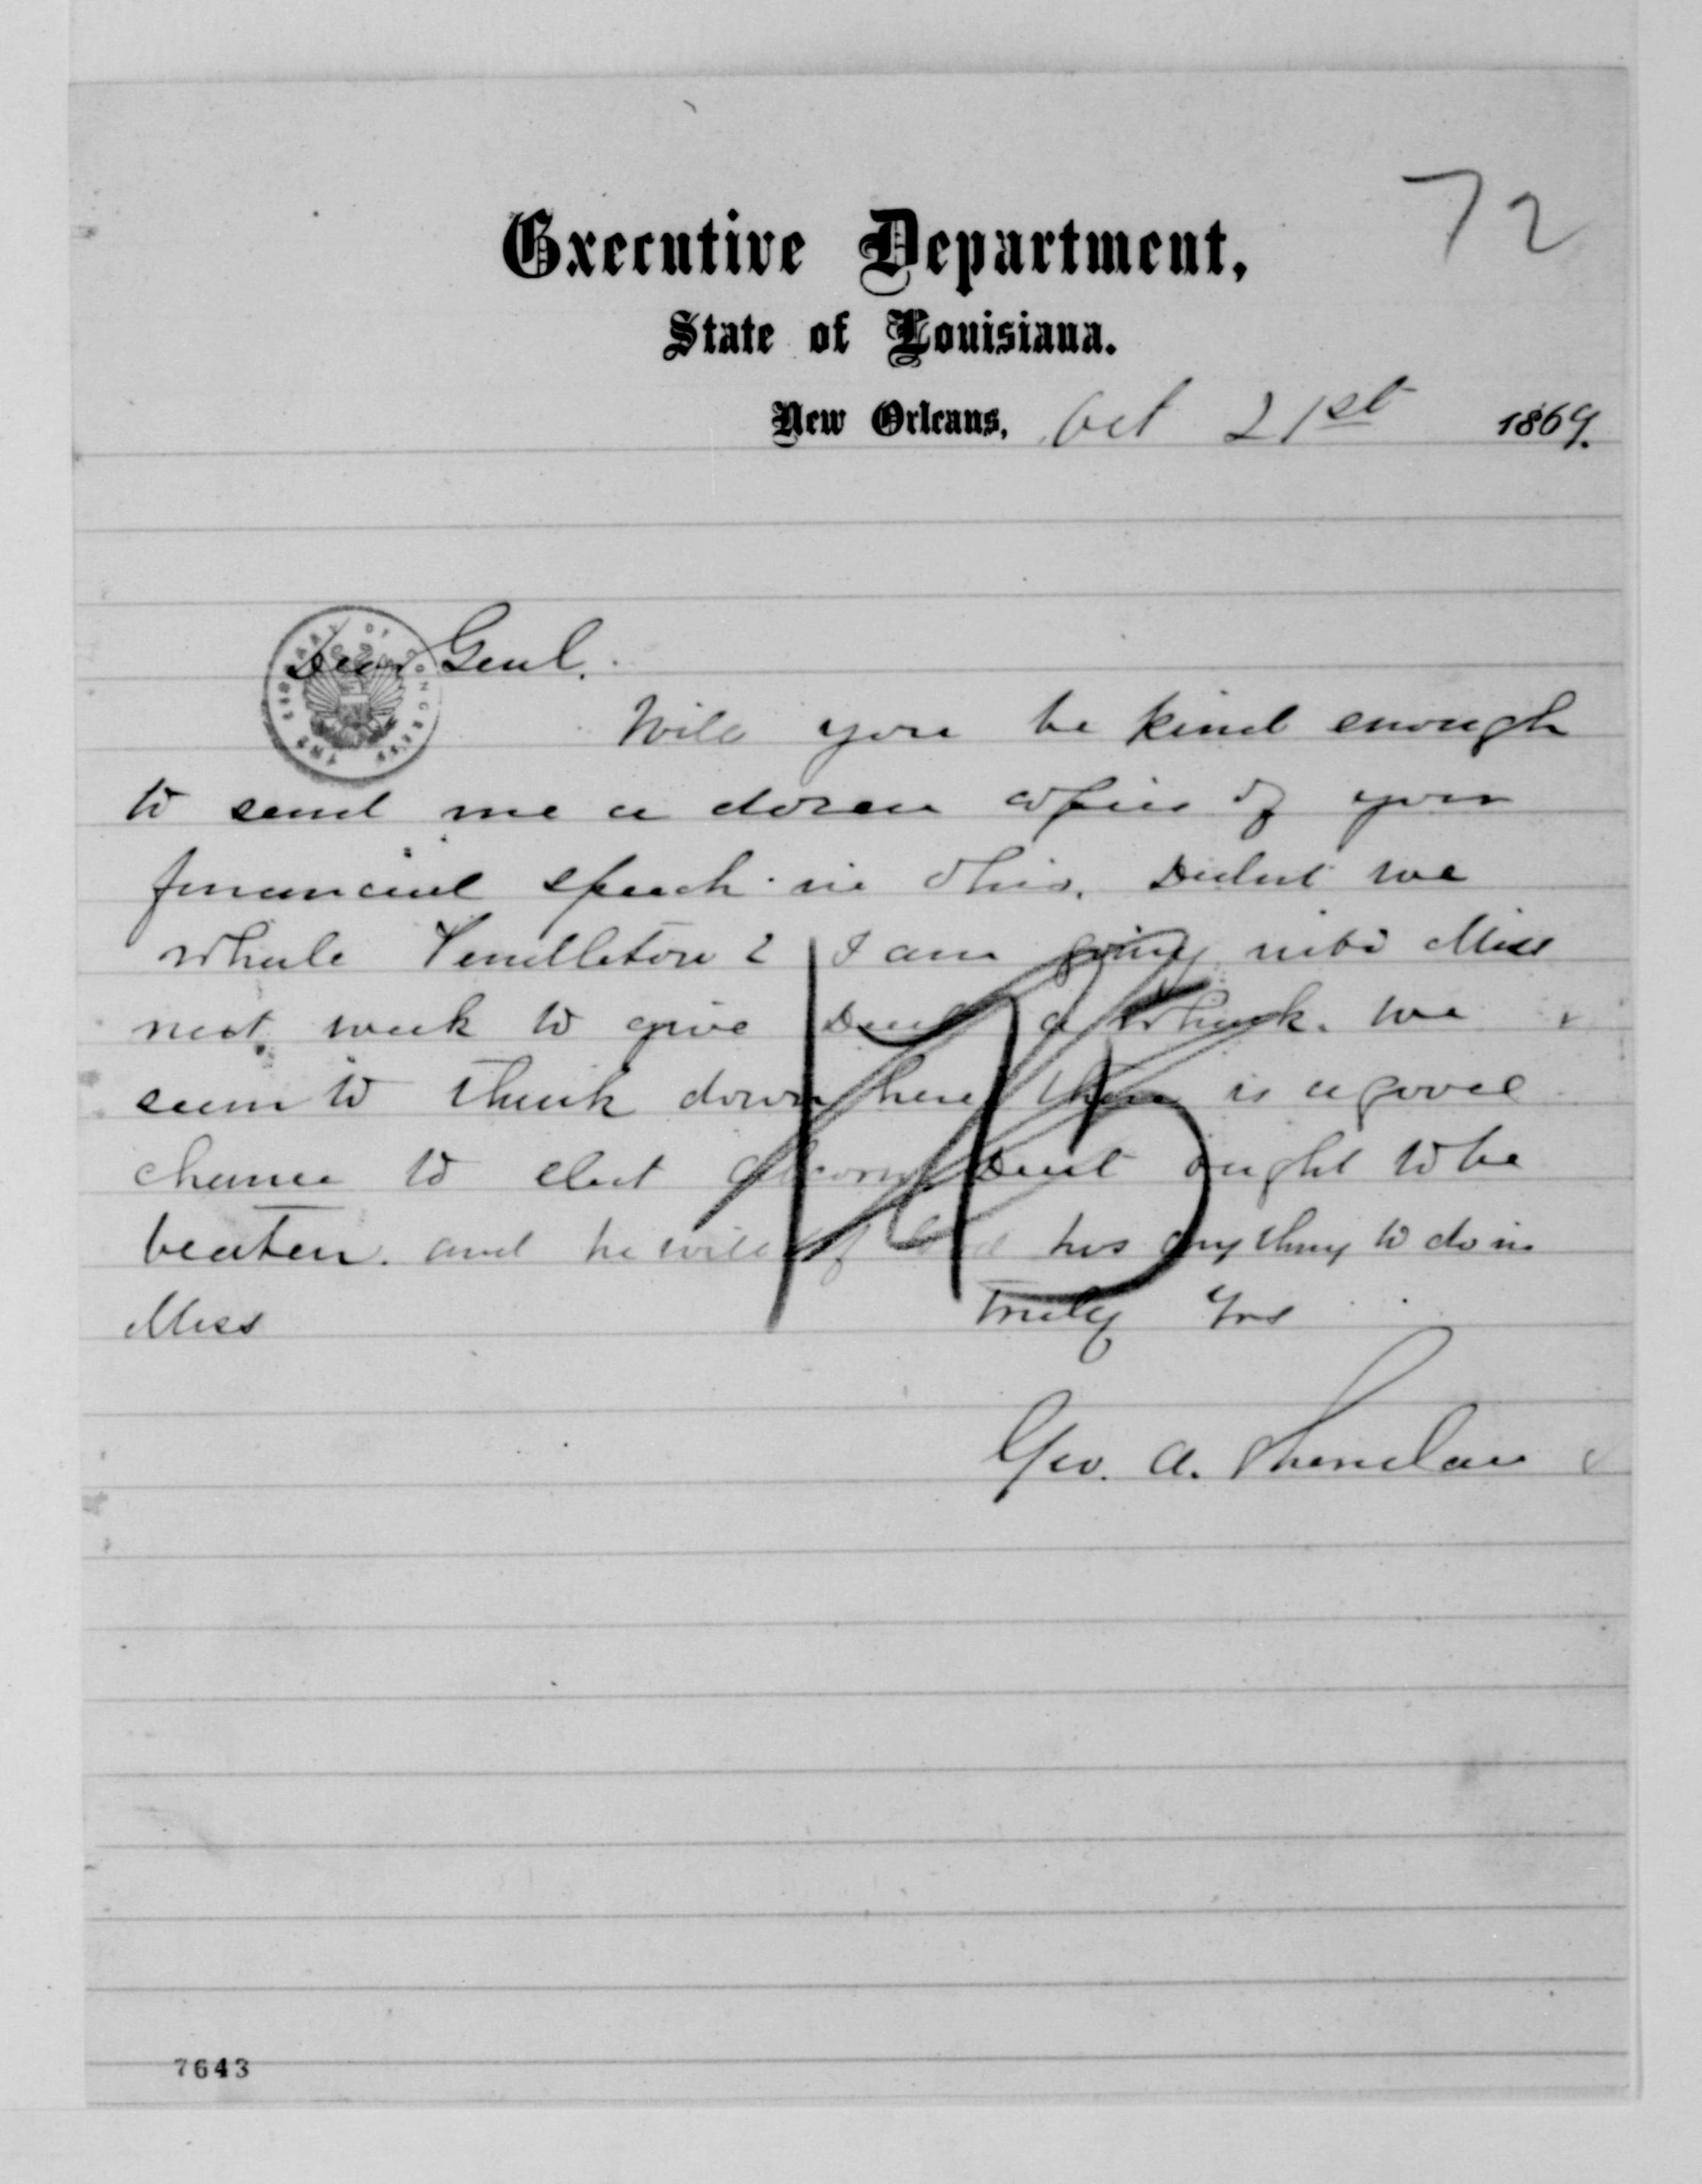 72
Executive Department,
State of Louisiana.
New Orleans, Oct 21st 1869.
THE LIBRARY OF CONGRESS
Dear Genl.
Will you be kind enough
to send me a dozen copies of your
financial speech in Ohio. Didnt we
whale Pendleton? I am going into Miss
next week to give Dent a whack. We
seem to think down here there is a good
chance to elect Alcorn Dent ought to be
beaten. and he will if God has anything to do in
Miss
Truly Yrs
Geo. A. Sheridan
175
7643